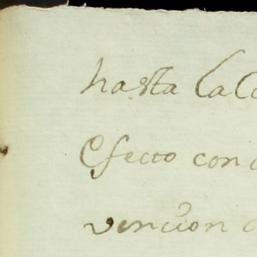 hasta la
Efecto con
vencion